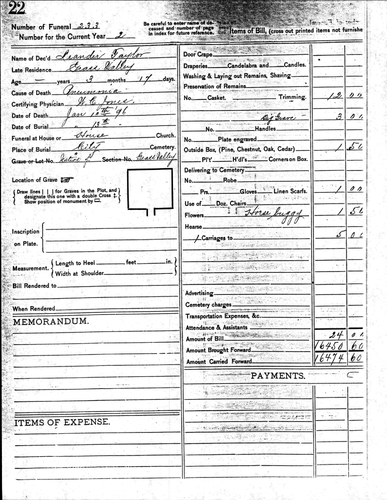 22
Number of Funeral 233
Number for the Current Year 2
Be careful to enter name of deceased and number of page in index for future reference.
Items of Bill, (cross out printed items not furnished
Name of Dec'd Leander Taylor
Late Residence Grass Valley
Age years 3 months 17 days.
Cause of Death Pneumonia
Certifying Physician W.C. Jones
Date of Death Jan 10th '96
Date of Burial 12th
Funeral at House Church.
Place of Burial City Cemetery
Grave or Lot No. Section No. Grass Valley
Location of Grave
Draw lines for Graves in the Plot, and designate this one with a double Cross
Show position of monument by
Inscription
on Plate.
Measurement, Length to Heel feet in.
Width at Shoulder
Bill Rendered to
When Rendered
MEMORANDUM.
ITEMS OF EXPENSE.
Door Crape
Draperies Candelabra and Candles.
Washing & Laying out Remains, Shaving
Preservation of Remains
No. Casket, Trimming, 12 00
No. Dig Grave 3 00
No. Handles
No. Plate engraved
Outside Box, (Pine, Chestnut, Oak, Cedar) 1 50
P/Y H'd's Corners on Box.
Delivering to Cemetery
No. Robe
Prs. Gloves Linen Scarfs. 1 00
Use of Doz. Chairs
Flowers Horse buggy 1 50
Hearse
1 Carriages to 5 00
Advertising
Cemetery charges
Transportation Expenses, &c.
Attendance & Assistants
Amount of Bill 24 00
Amount Brought Forward 16450 60
Amount Carried Forward 16474 60
PAYMENTS.